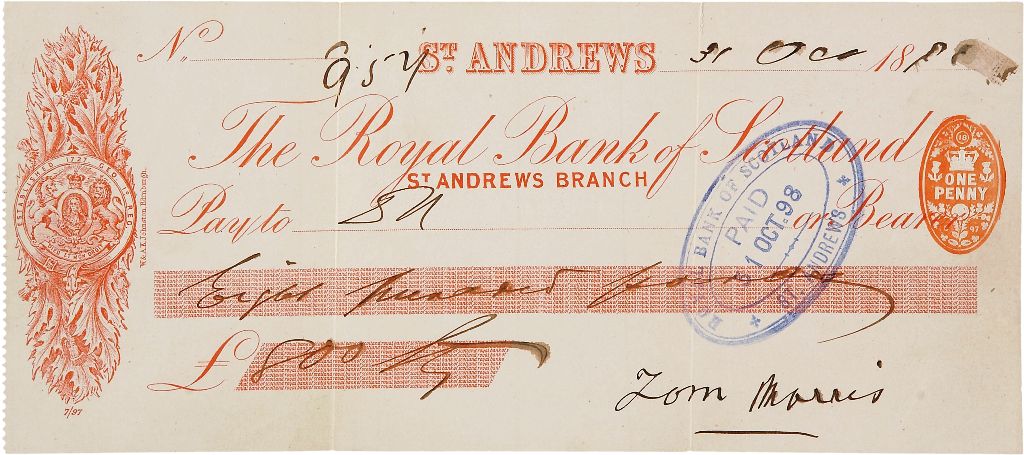 No. 957 ST. ANDREWS 31 Oct 1898
The Royal Bank of Scotland
ST ANDREWS BRANCH
Pay to or Bearer
Eight hundred pounds
£ 800
Tom Morris
ESTABLISHED 1727
W. & A.K. Johnston, Edinburgh.
7/97
ROYAL BANK OF SCOTLAND
PAID
31 OCT. 98
ST. ANDREWS
18
ONE
PENNY
97